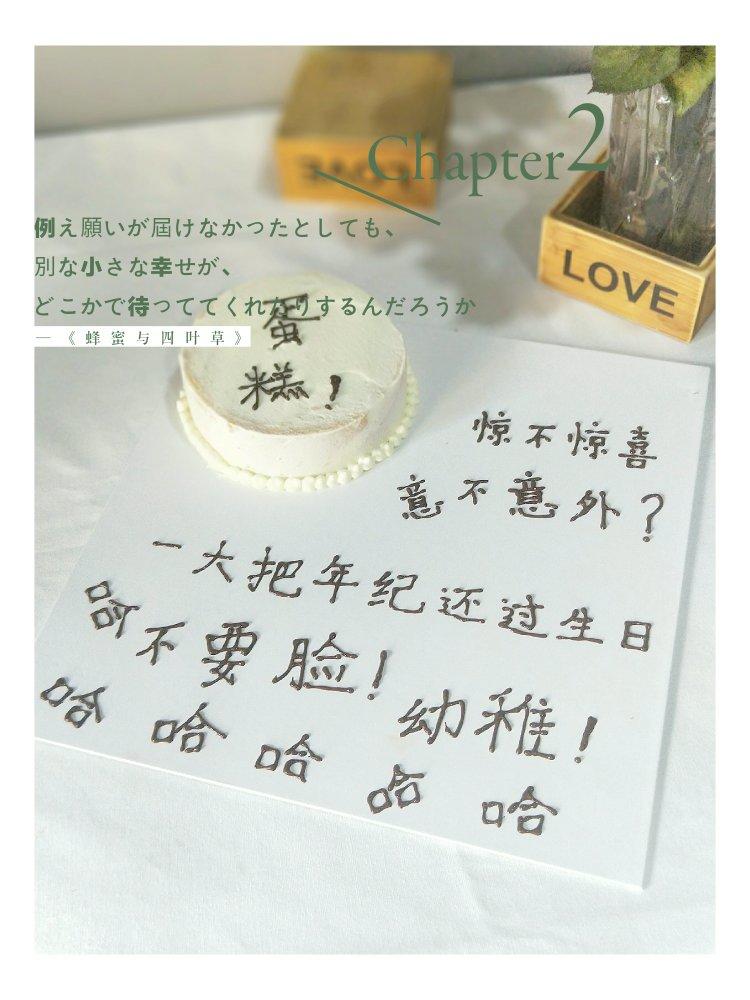 Chapter2
LOVE
LOVE
例え願いが届けなかつたとしても、
別な小さな幸せが、
どこかで待つててくれたりするんだろうか
—《蜂蜜与四叶草》
蛋
糕!
惊不惊喜
意不意外?
一大把年纪还过生日
不要脸!
幼稚!
哈
哈
哈
哈
哈
哈